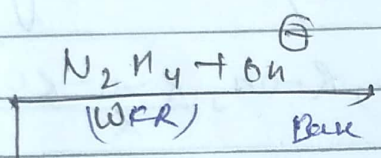 N₂H₄ + OH⊖
(WKR) Base